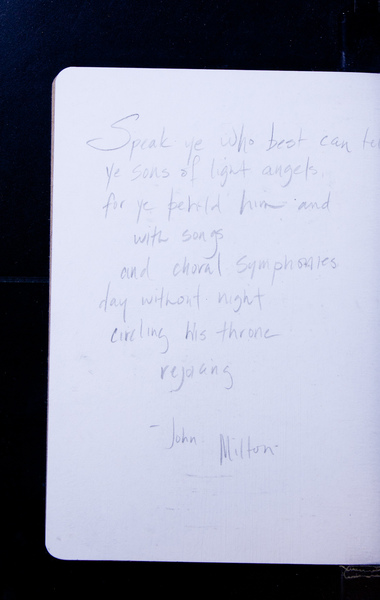 Speak ye who best can te
ye sons of light angels.
for ye behild him and
with songs
and choral symphonies
day without night
circling his throne
rejoicing
- John Milton -